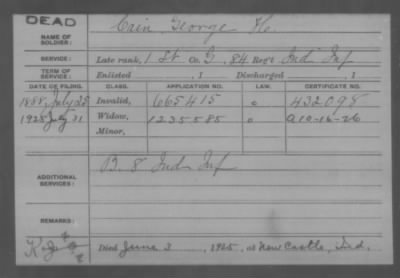 DEAD
NAME OF SOLDIER: Cain, George H.
SERVICE: Late rank, 1 St Co. G, 84 Reg't Ind Inf
TERM OF SERVICE: Enlisted , 1 Discharged , 1
DATE OF FILING. CLASS. APPLICATION NO. LAW. CERTIFICATE NO.
1888, July 25 Invalid, 665415 o 432098
1925 July 31 Widow, 1235585 o A10-16-26
Minor,
ADDITIONAL SERVICES: B. 8 Ind Inf
REMARKS: Died June 3, 1925, at New Castle, Ind.